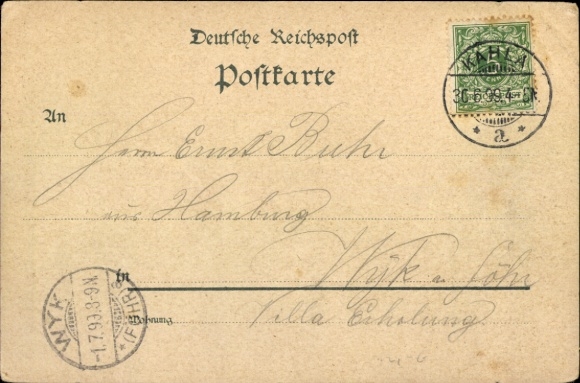 Deutsche Reichspost
Postkarte
KAHLA
30.6.99.4-5N.
* a *
An
Herrn Ernst Buhr
aus Hamburg
in Wyk a. Föhr
Wohnung
Villa Erholung
WYK
-1.7.99.8-9N.
*(FÖHR)*